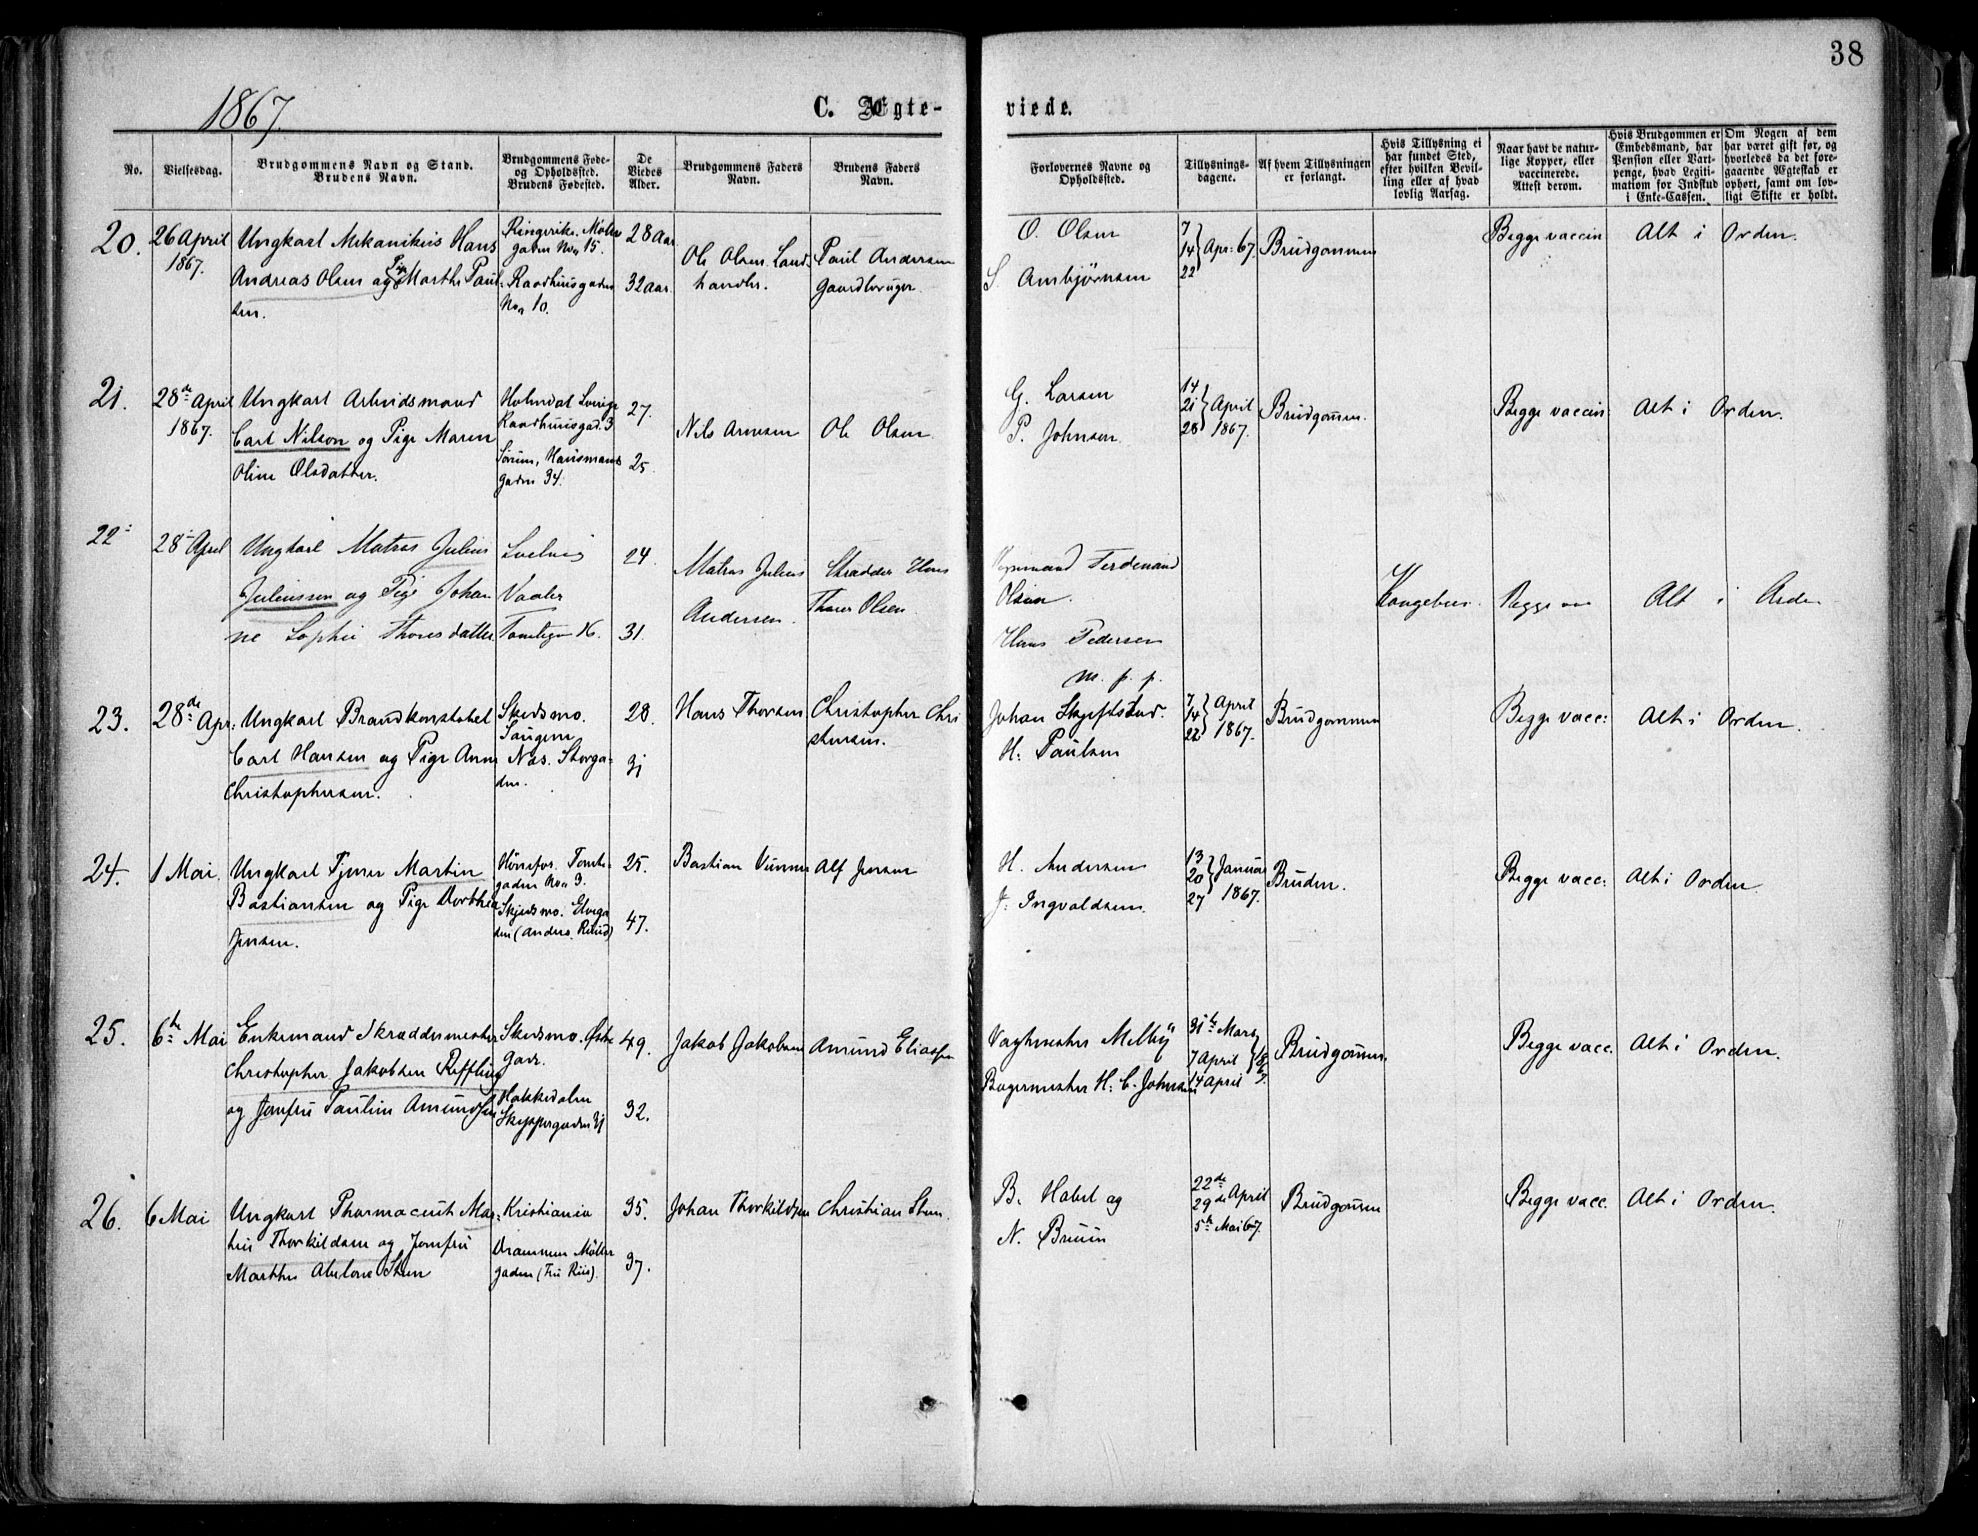 38
1867.
C. Ægte-
viede.
No.
Vielsesdag.
Brudgommens Navn og Stand.
Brudens Navn.
Brudgommens Føde-
og Opholdssted.
Brudens Fødested.
De
Viedes
Alder.
Brudgommens Faders
Navn.
Brudens Faders
Navn.
Forlovernes Navne og
Opholdssted.
Tillysnings-
dagene.
Af hvem Tillysningen
er forlangt.
Hvis Tillysning ei
har fundet Sted,
efter hvilken Bevil-
ling eller af hvad
lovlig Aarsag.
Naar havt de natur-
lige Kopper, eller
vaccinerede.
Attest derom.
Hvis Brudgommen er
Embedsmand, har
Pension eller Vart-
penge, hvad Legiti-
mation for Indskud
i Enke-Cassen.
Om Nogen af dem
har været gift før, og
hvorledes da det fore-
gaaende Ægteskab er
ophørt, samt om lov-
ligt Skifte er holdt.
20.
26 April
1867.
Ungkarl Mekanikus Hans
Andreas Olsen og Pige Marthe Paul-
sen.
Ringerike. Møller
gaden No 15.
Raadhusgaden
No 10.
28 Aar
32 aar.
Ole Olsen Land-
handler.
Paul Andersen
Gaardbruger.
O. Olsen
S. Ambjørnsen
7
14
22
Apr: 67.
Brudgommen
Begge vaccin
Alt i Orden.
21.
28de April
1867.
Ungkarl Arbeidsmand
Carl Nilson og Pige Maren
Oline Olsdatter.
Holmdal Sverige
Raadhusgad. 3
Sørum, Hausmans
gaden 34.
27.
25.
Nils Arnesen
Ole Olsen.
G. Larsen
P. Johnsen.
14
21
28
April
1867.
Brudgommen.
Begge vaccin:
Alt i Orden.
22
28 April
Ungkarl Matros Julius
Juliussen og Pige Johan
ne Sophie Thoresdatter
Vaaler
Tomtegn 16.
24.
31.
Matros Julius
Andersen.
Skrædder Hans
Thorer Olsen.
Ferdinand
Olsen.
Hans Pedersen
m. p. p.
Begge
Alt i
23.
28de Apr:
Ungkarl Brandkonstabel
Carl Hansen og Pige Anne
Christophersen.
Skedsmo.
Saugene
Nes. Storga-
den.
28.
31
Hans Thorsen
Christopher Chri
stensen.
Johan Skjeftstad.
H. Paulsen
7
14
22
April
1867.
Brudgommen
Begge vacc:
Alt i Orden.
24.
1 Mai.
Ungkarl Tjener Martin
Bastiansen og Pige Dorthea
Jensen.
Tomte-
gaden No 9.
Skjedsmo. Elvega
den (Anders. Ruud)
25.
47.
Bastian
Alf Jensen
H. Andersen
J. Ingvaldsen.
13
20
27
Januar
1867.
Bruden.
Begge vacc:
Alt i Orden
25.
6te Mai
Enkemand Skræddermester
Christopher Jakobsen Reffling
og Jomfru Pauline Amundsen
Skedsmo. Østre
Gade.
Hakkedalen
Skippergaden 31
49.
32.
Jakob Jakobsen
Amund Eliassen
Vagtmester Melby
Bagermester H: C. Johnsen
31te Mars
7 April
14 April
1867.
Brudgommen
Begge vacc.
Alt i Orden.
26.
6 Mai
Ungkarl Pharmaceut Ma-
thias Thorkildsen og Jomfru
Marthe Abelone Steen
Kristiania
Drammen Møller
gaden (Fru Riis).
35.
37.
Johan Thorkildsen
Christian Steen.
B. Habel og
N. Bruun
22de
29de April
5te Mai 67.
Brudgommen
Begge vacc.
Alt i Orden.